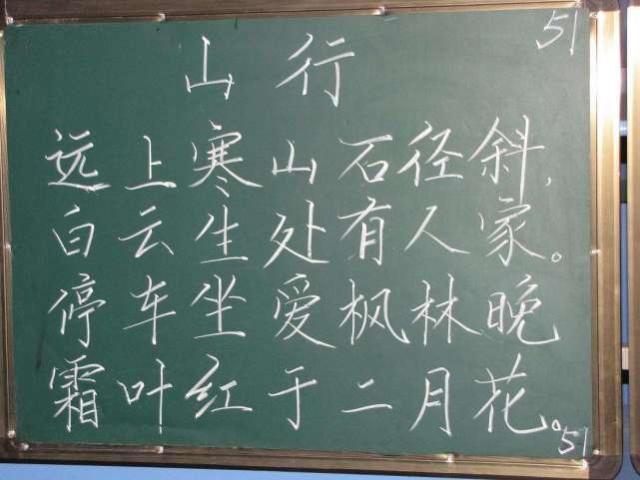 51
山行
远上寒山石径斜，
白云生处有人家。
停车坐爱枫林晚
霜叶红于二月花。
51